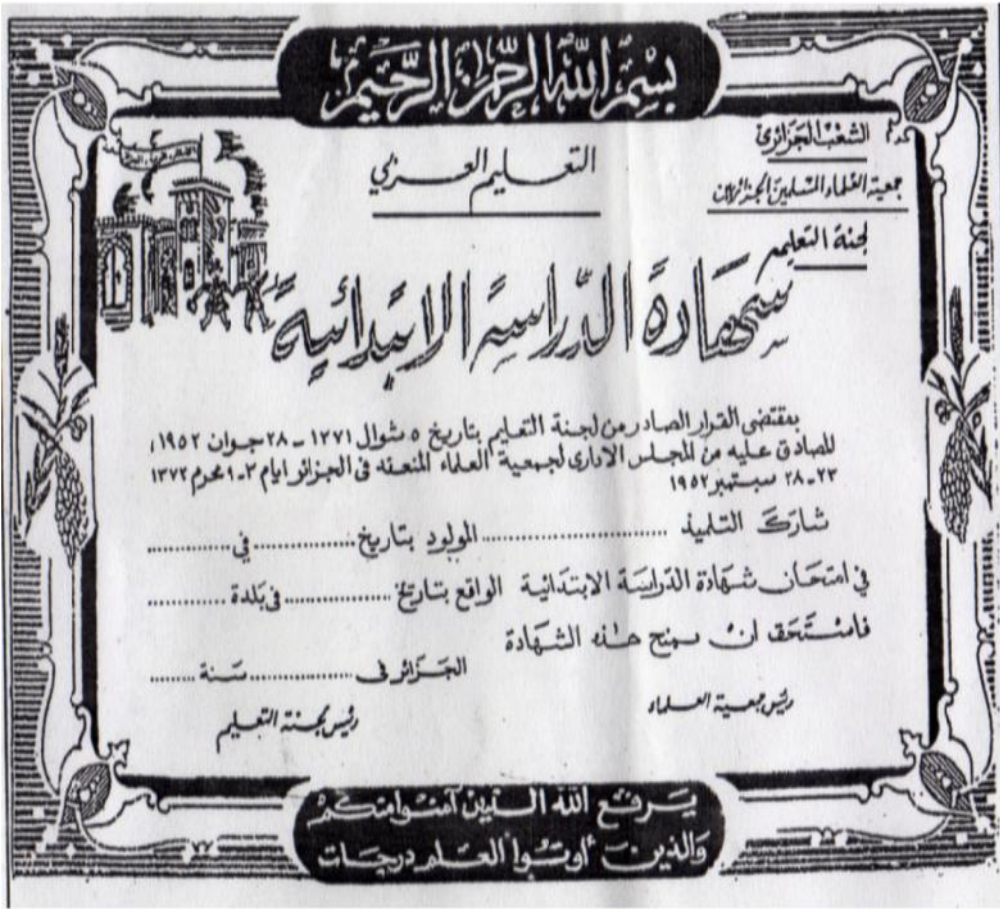 بسم الله الرحمن الرحيم
الشعب الجزائري
جمعية العلماء المسلمين الجزائريين
لجنة التعليم
التعليم العربي
شهادة الدراسة الابتدائية
بمقتضى القرار الصادر من لجنة التعليم بتاريخ ٥ شوال ١٣٧١ ـ ٢٨ جوان ١٩٥٢،
المصادق عليه من المجلس الادارى لجمعية العلماء المنعقد فى الجزائر ايام ٣ـ٩ محرم ١٣٧٢
٢٣ـ٢٨ سبتمبر ١٩٥٢
شارك التلميذ .................... المولود بتاريخ ............ في ............
في امتحان شهادة الدراسة الابتدائية الواقع بتاريخ ............ فى بلدة ............
فاستحق ان يمنح هذه الشهادة
الجزائر فى ............ سنة ......
رئيس جمعية العلماء
رئيس لجنة التعليم
يرفع الله الذين آمنوا منكم
والذين أوتوا العلم درجات